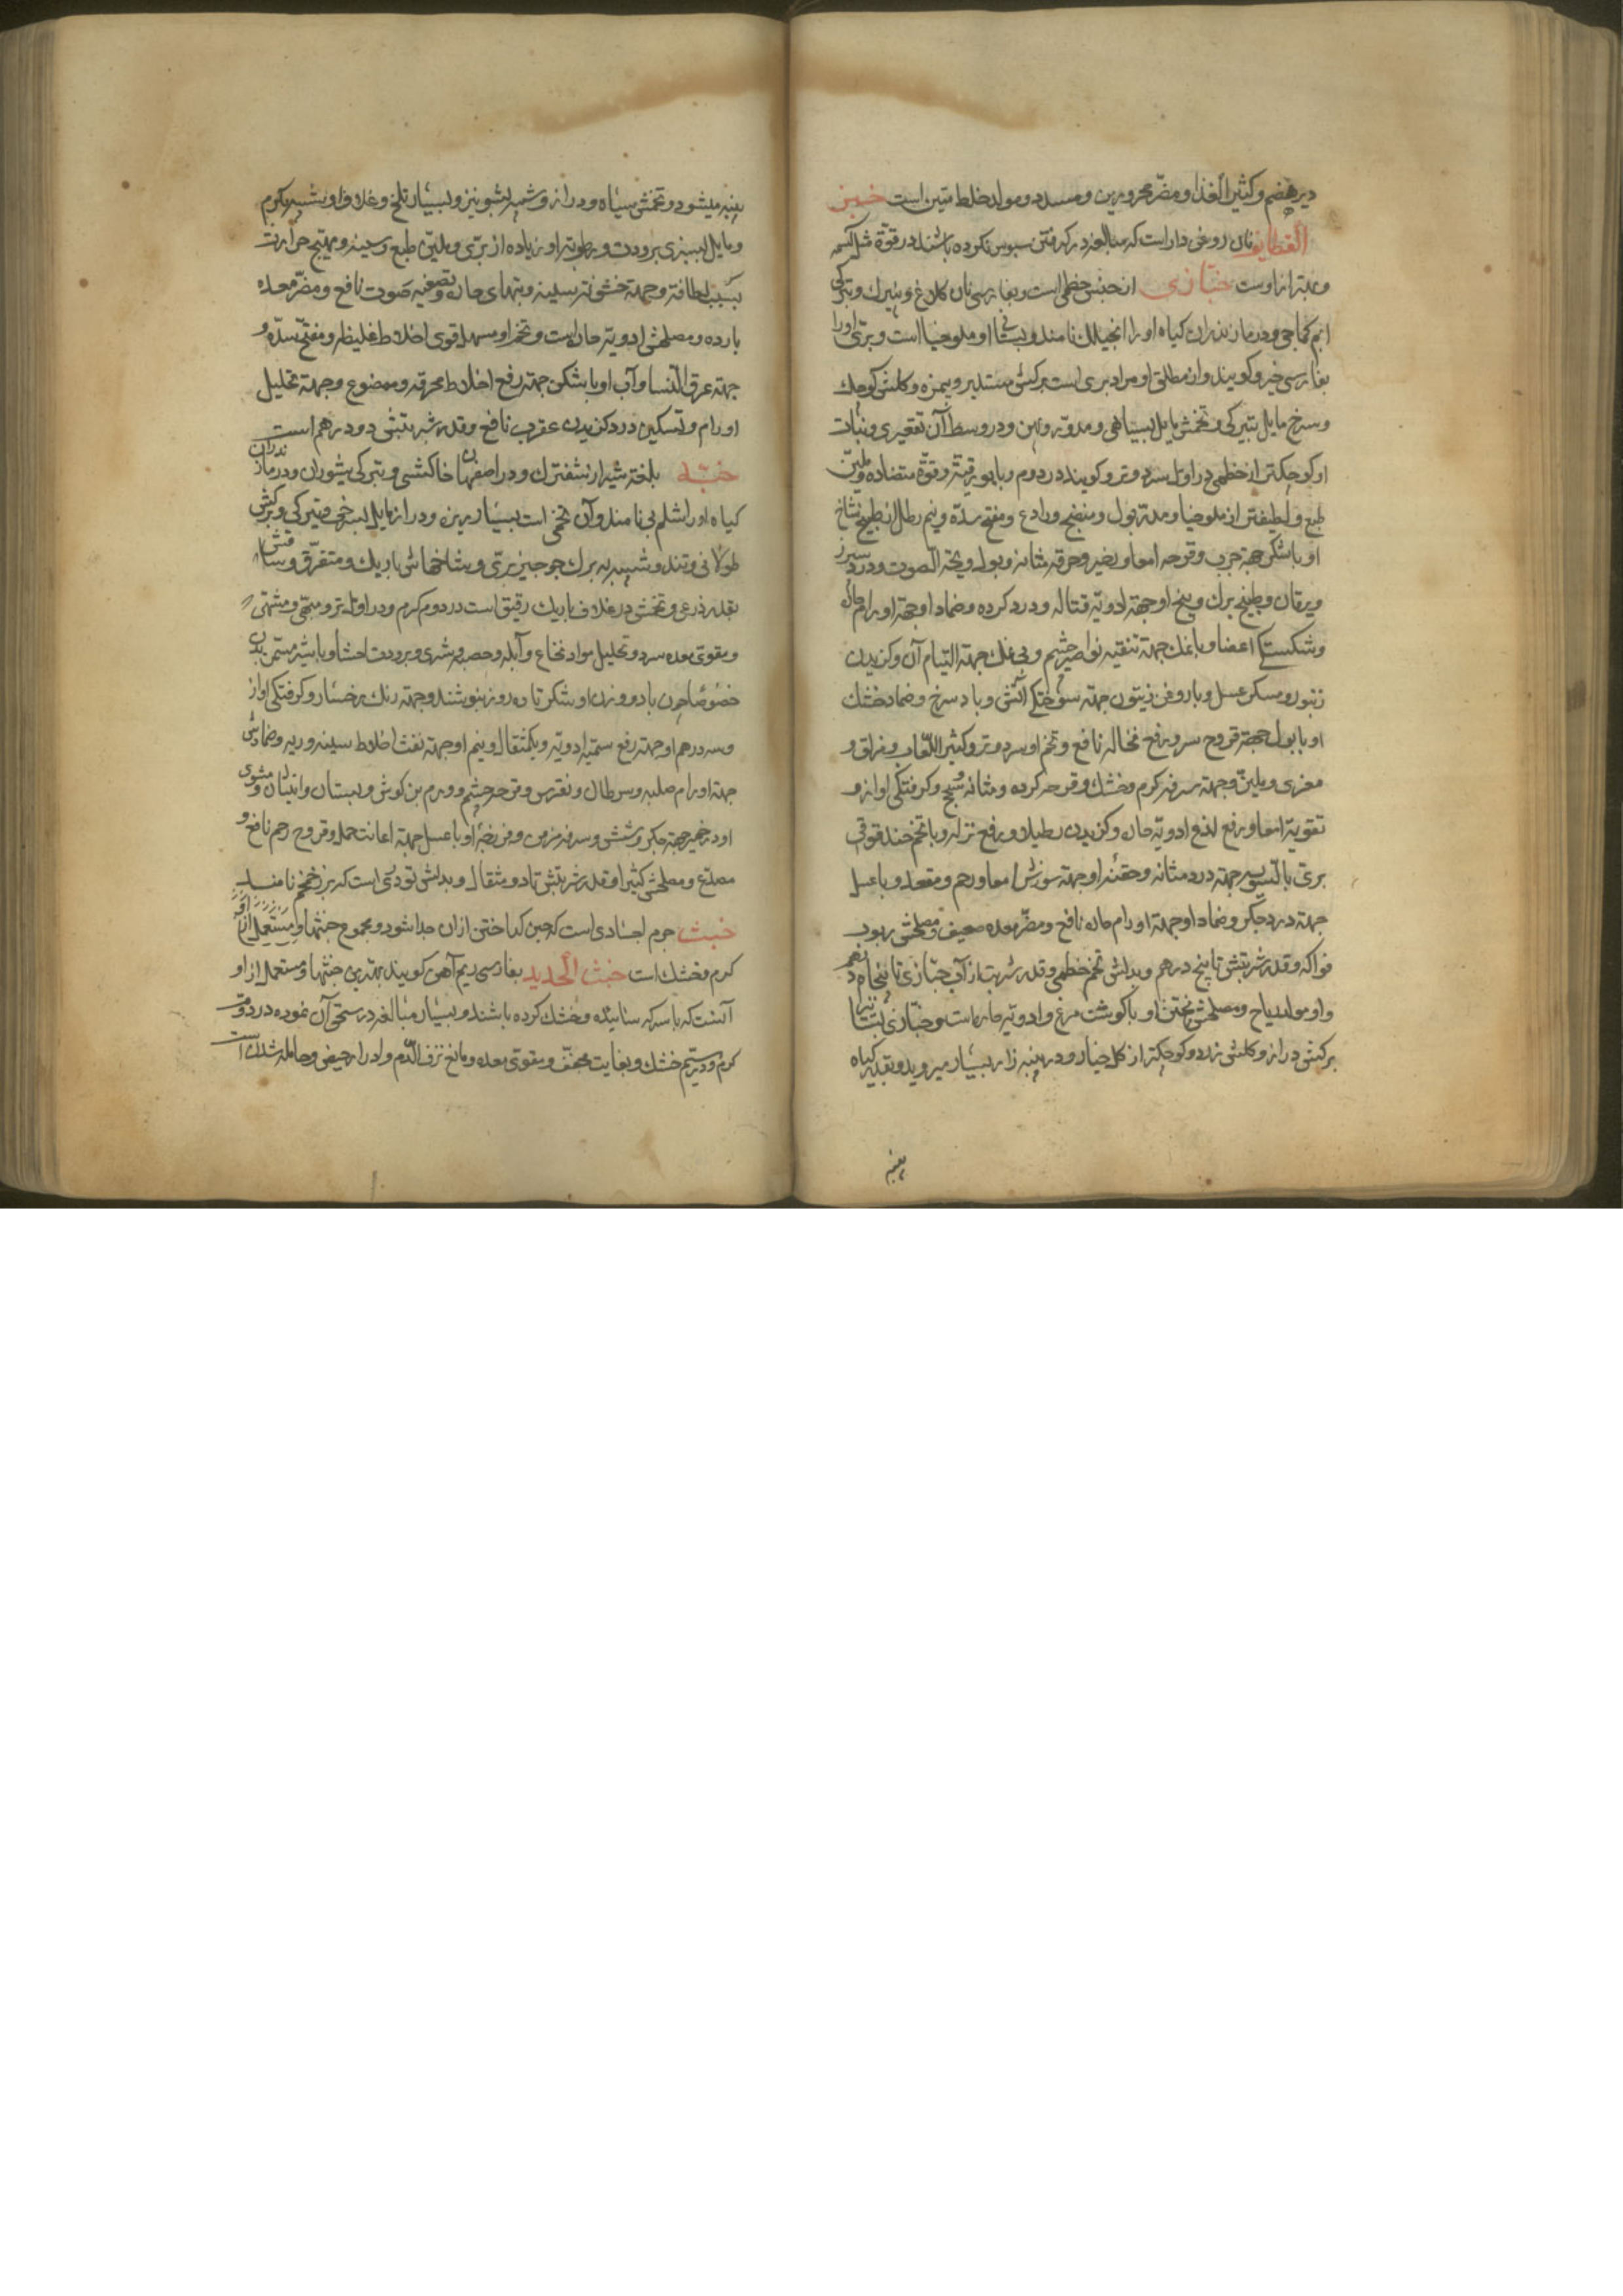 دیرهضم و کثیر الغذا و مضر محرورین و مسدد و مولد خلط متین است خبز
القطایف نان روغنی دار است که مبالغه در گرفتن سبوس نکرده باشند در قوة مثل کسمه
و غیر از اوست خبازی از جنس خطمی است و بفارسی نان کلاغ و پنیرک و بترکی
ابم کماجی و در مازندران کیاه او را انجیلک نامند و بستانی او ملوخیا است و بری او را
بفارسی خیرو کویند و از مطلق او مراد بری است برکش مستدیر و بیمزه و کلش کوچک
و سرخ مایل بتیرکی و تخمش مایل بسیاهی و مدور و پهن و در وسط آن تقعیری و نبات
او کوچکتر از خطمی در اول سرد و تر و کویند در دوم و با بورقیة و قوة متضاده و ملین
طبع و لطیفتر از ملوخیا و مدر بول و منضج و رادع و مفتح سده و نیم رطل از طبیخ شاخ
او با شکر جهة جرب و قرحه امعا و بحیر و حرقه مثانه و بول و بحة الصوت و درد سپرز
و یرقان و طبیخ برک و بیخ او جهة ادویه قتاله و درد کرده و ضماد او جهة اورام حاره
و شکستکی اعضا و با نمک جهة تنقیه نواصیر چشم و بی نمک جهة التیام آن و کزیدن
زنبور و مسکر عسل و با روغن زیتون جهة سوختکی آتش و باد سرخ و ضماد خشک
او با بول جهة قروح سر و رفع نخاله نافع و تخم او سرد و تر و کثیر اللعاب و مزلق و
مغری و ملین و جهة سرفه کرم و خشک و قرحه کرده و مثانه و سحج و کرفتکی اواز و
تقویة امعا و رفع لذع ادویه حاره و کزیدن رطیلا و رفع نزله و با تخم حندقوقی
بری بالسویه جهة درد مثانه و حقنه او جهة سوزش امعا و رحم و مقعد و با عسل
جهة درد جکر و ضماد او جهة اورام حاره نافع و مضر معده ضعیف و مصلحش ربوب
فواکه و قدر شربتش تا پنج درهم و بدلش تخم خطمی و قدر شربت از آب خبازی تا پنجاه درهم
و او مولد ریاح و مصلحش پختن او با کوشت مرغ و ادویه حاره است و خبازی بستانی را
برکش دراز و کلش زرد و کوچکتر از کل خیار و در پنبه زار بسیار میروید و بقدر کیاه
پنبه
پنبه میشود و تخمش سیاه و دراز و شبیه بشونیز و بسیار تلخ و غلاف او شبیه بکرم
و مایل بسبزی برودت و رطوبة او زیاده از بری و ملین طبع و سینه و مهیج حرارت
بسبب لطافة و جهة خشونة سینه و تبهای حاره و تصفیه صوت نافع و مضر معده
بارده و مصلحش ادویه حاره است و تخم او مسهل قوی اخلاط غلیظه و مفتح سده و
جهة عرق النسا و آب او با شکر جهة رفع اخلاط محرقه و موضوع و جهة تحلیل
اورام و تسکین درد کزیدن عقرب نافع و قدر شربتش دو درهم است
خبه بلغة شیراز شفترک و در اصفهان خاکشی و بترکی شیوران و در مازندران
کیاه او را شلم بی نامند و آن تخمی است بسیار ریزه و دراز مایل بسرخی و تیرکی و برکش
طولانی و تند و شبیه به برک جرجیر بری و شاخهاش باریک و متفرق و ساقش
بقدر ذرعی و تخمش در غلاف باریک رقیق است در دوم کرم و در اول تر و مبهی و مشهی
و مقوی معده سرد و تحلیل مواد نخاع و آبله و حصبه و شری و برودت احشا و با شیر مسمن بدن
خصوصا چون با دو وزن او شکر تا ده روز بنوشند و جهة رنک رخسار و کرفتکی اواز
و سه درهم او جهة رفع سمیة ادویه و یکمثقال و نیم او جهة نفث اخلاط سینه و ریه و ضمادش
جهة اورام صلبه و سرطان و نقرس و قرحه چشم و ورم بن کوش و پستان و انثیان و مشوی
او در خمیر جهة جکر و شش و سرفه مزمن و فرزجه او با عسل جهة اعانت حمل و قروح رحم نافع و
مصدع و مصلحش کتیرا و قدر شربتش تا دو مثقال و بدلش تودری است که بزر خمخم نامند
خبث جرم اجسادی است که حین کداختن ازان جدا شود و مجموع خبثها و مستعمل از او
کرم و خشک است خبث الحدید بفارسی ریم آهن کویند بهترین خبثها و مستعمل از او
آنست که با سرکه سائیده و خشک کرده باشند و بسیار مبالغه در سحق آن نموده در دوم
کرم و در سیم خشک و بغایت مجفف و مقوی معده و مانع نزف الدم و ادرار حیض و حامله شدن است